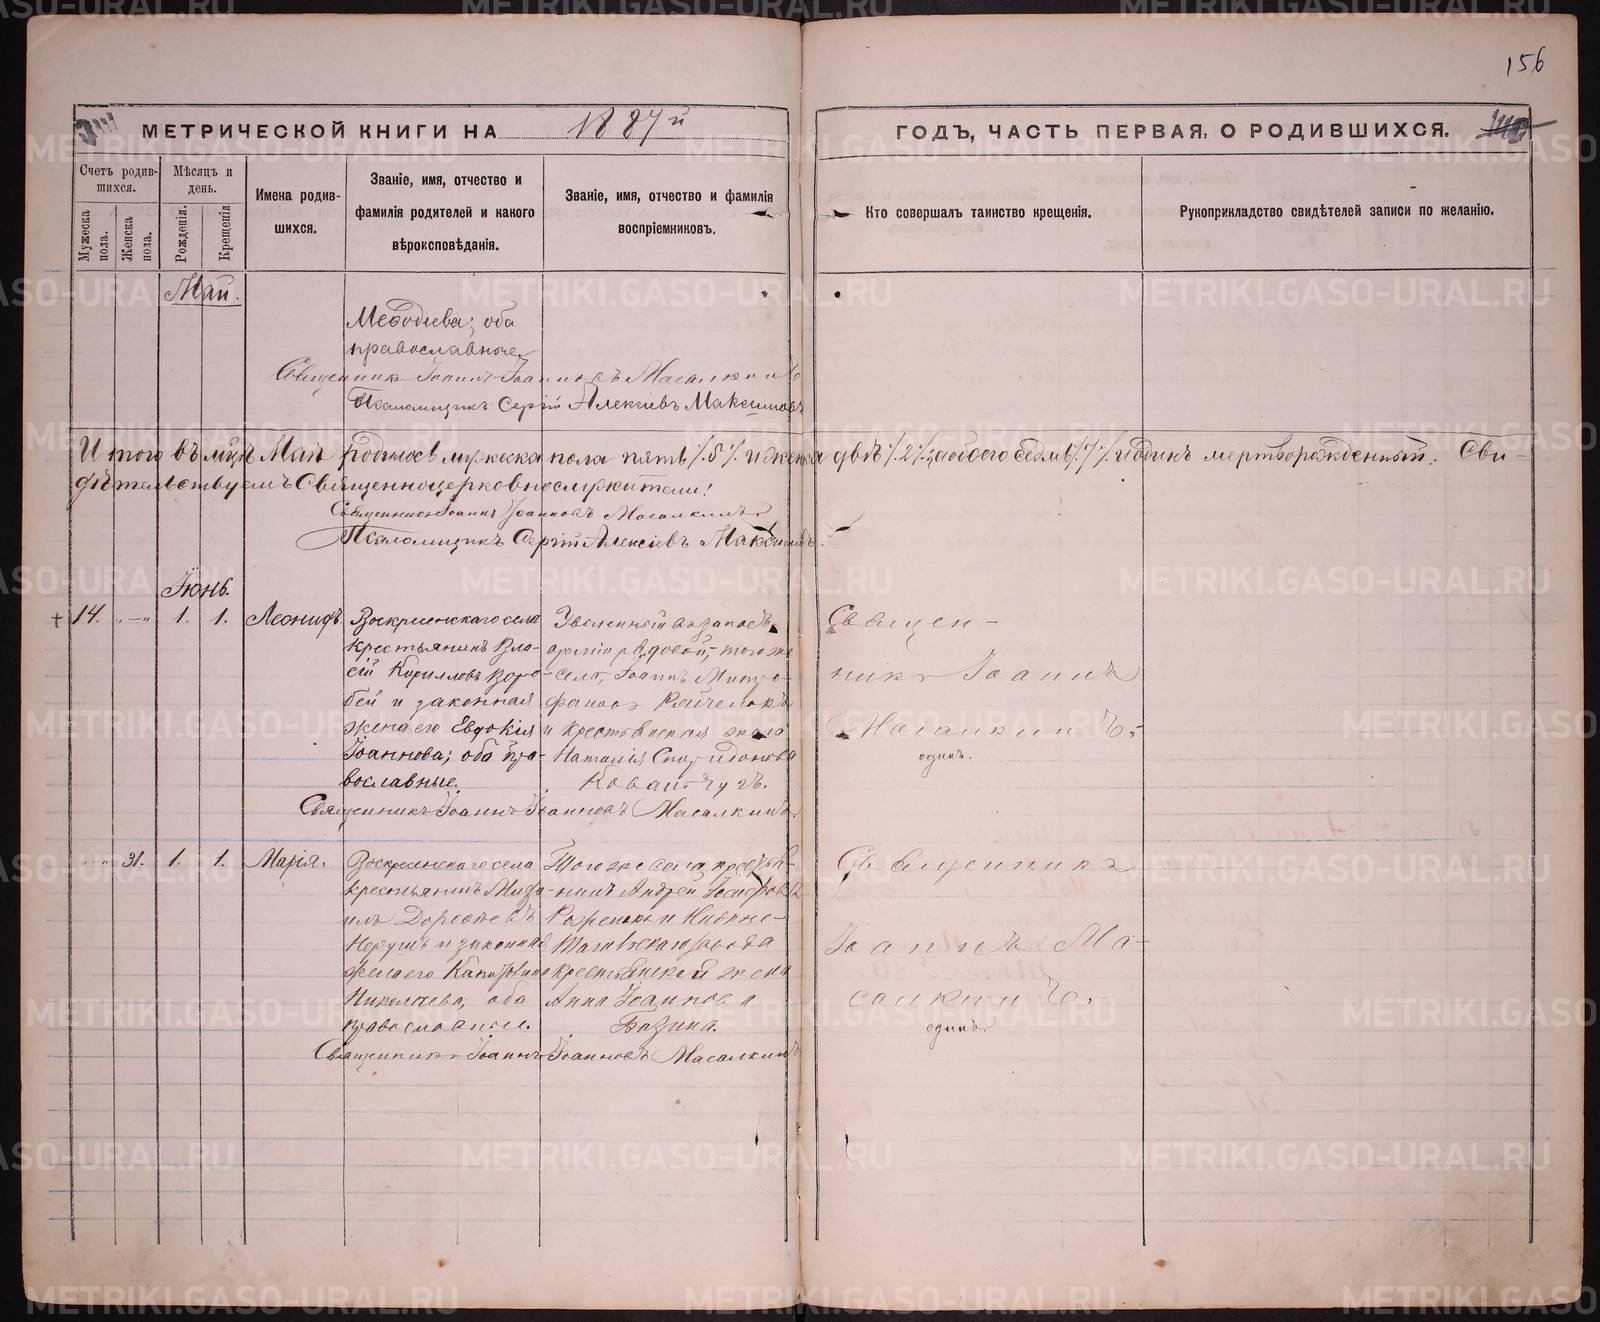 156
МЕТРИЧЕСКОЙ КНИГИ НА 1887й ГОДЪ, ЧАСТЬ ПЕРВАЯ, О РОДИВШИХСЯ.
Счетъ родив-
шихся.
Мужеска пола.
Женска пола.
Мѣсяцъ и
день.
Рожденія.
Крещенія
Имена родив-
шихся.
Званіе, имя, отчество и
фамилія родителей и какого
вѣроисповѣданія.
Званіе, имя, отчество и фамилія
воспріемниковъ.
Кто совершалъ таинство крещенія.
Рукоприкладство свидѣтелей записи по желанію.
Май.
Меѳодіева; оба
православные
Священникъ Іоаннъ Іоанновъ Масалкинъ
Псаломщикъ Сергій Алексіевъ Максимовъ
Итого въ мцѣ Маѣ родилось мужеска пола пять /.5/. и женска двѣ /.2/. а обоего седмь /.7/. и одинъ мертворожденный. Сви-
дѣтельствуемъ Священноцерковнослужители:
Священникъ Іоаннъ Іоанновъ Масалкинъ
Псаломщикъ Сергій Алексіевъ Максимовъ.
Іюнь.
14. „—„ 1. 1. Леонидъ
Воскресенскаго села
крестьянинъ Вла-
сій Кирилловъ Воро-
бей и законная
жена его Евдокія
Іоаннова; оба пра-
вославные.
Уволенный въ запасъ
арміи рядовой, того же
села, Іоаннъ Митро-
фановъ
и крестьянская жена
Наталія Спиридонова
Священ-
никъ Іоаннъ
Масалкинъ,
одинъ.
Священникъ Іоаннъ Іоанновъ Масалкинъ.
„—„ 31. 1. 1. Марія.
Воскресенскаго села
крестьянинъ Миха-
илъ Дороѳеевъ
и законная
жена его
Николаева, оба
православные.
Того же села крестья-
нинъ Андрей Іосифовъ
и Нижне-
Тагильскаго завода
крестьянская жена
Анна Іоаннова
Базина.
Священникъ
Іоаннъ Ма-
салкинъ,
одинъ.
Священникъ Іоаннъ Іоанновъ Масалкинъ
METRIKI.GASO-URAL.RU